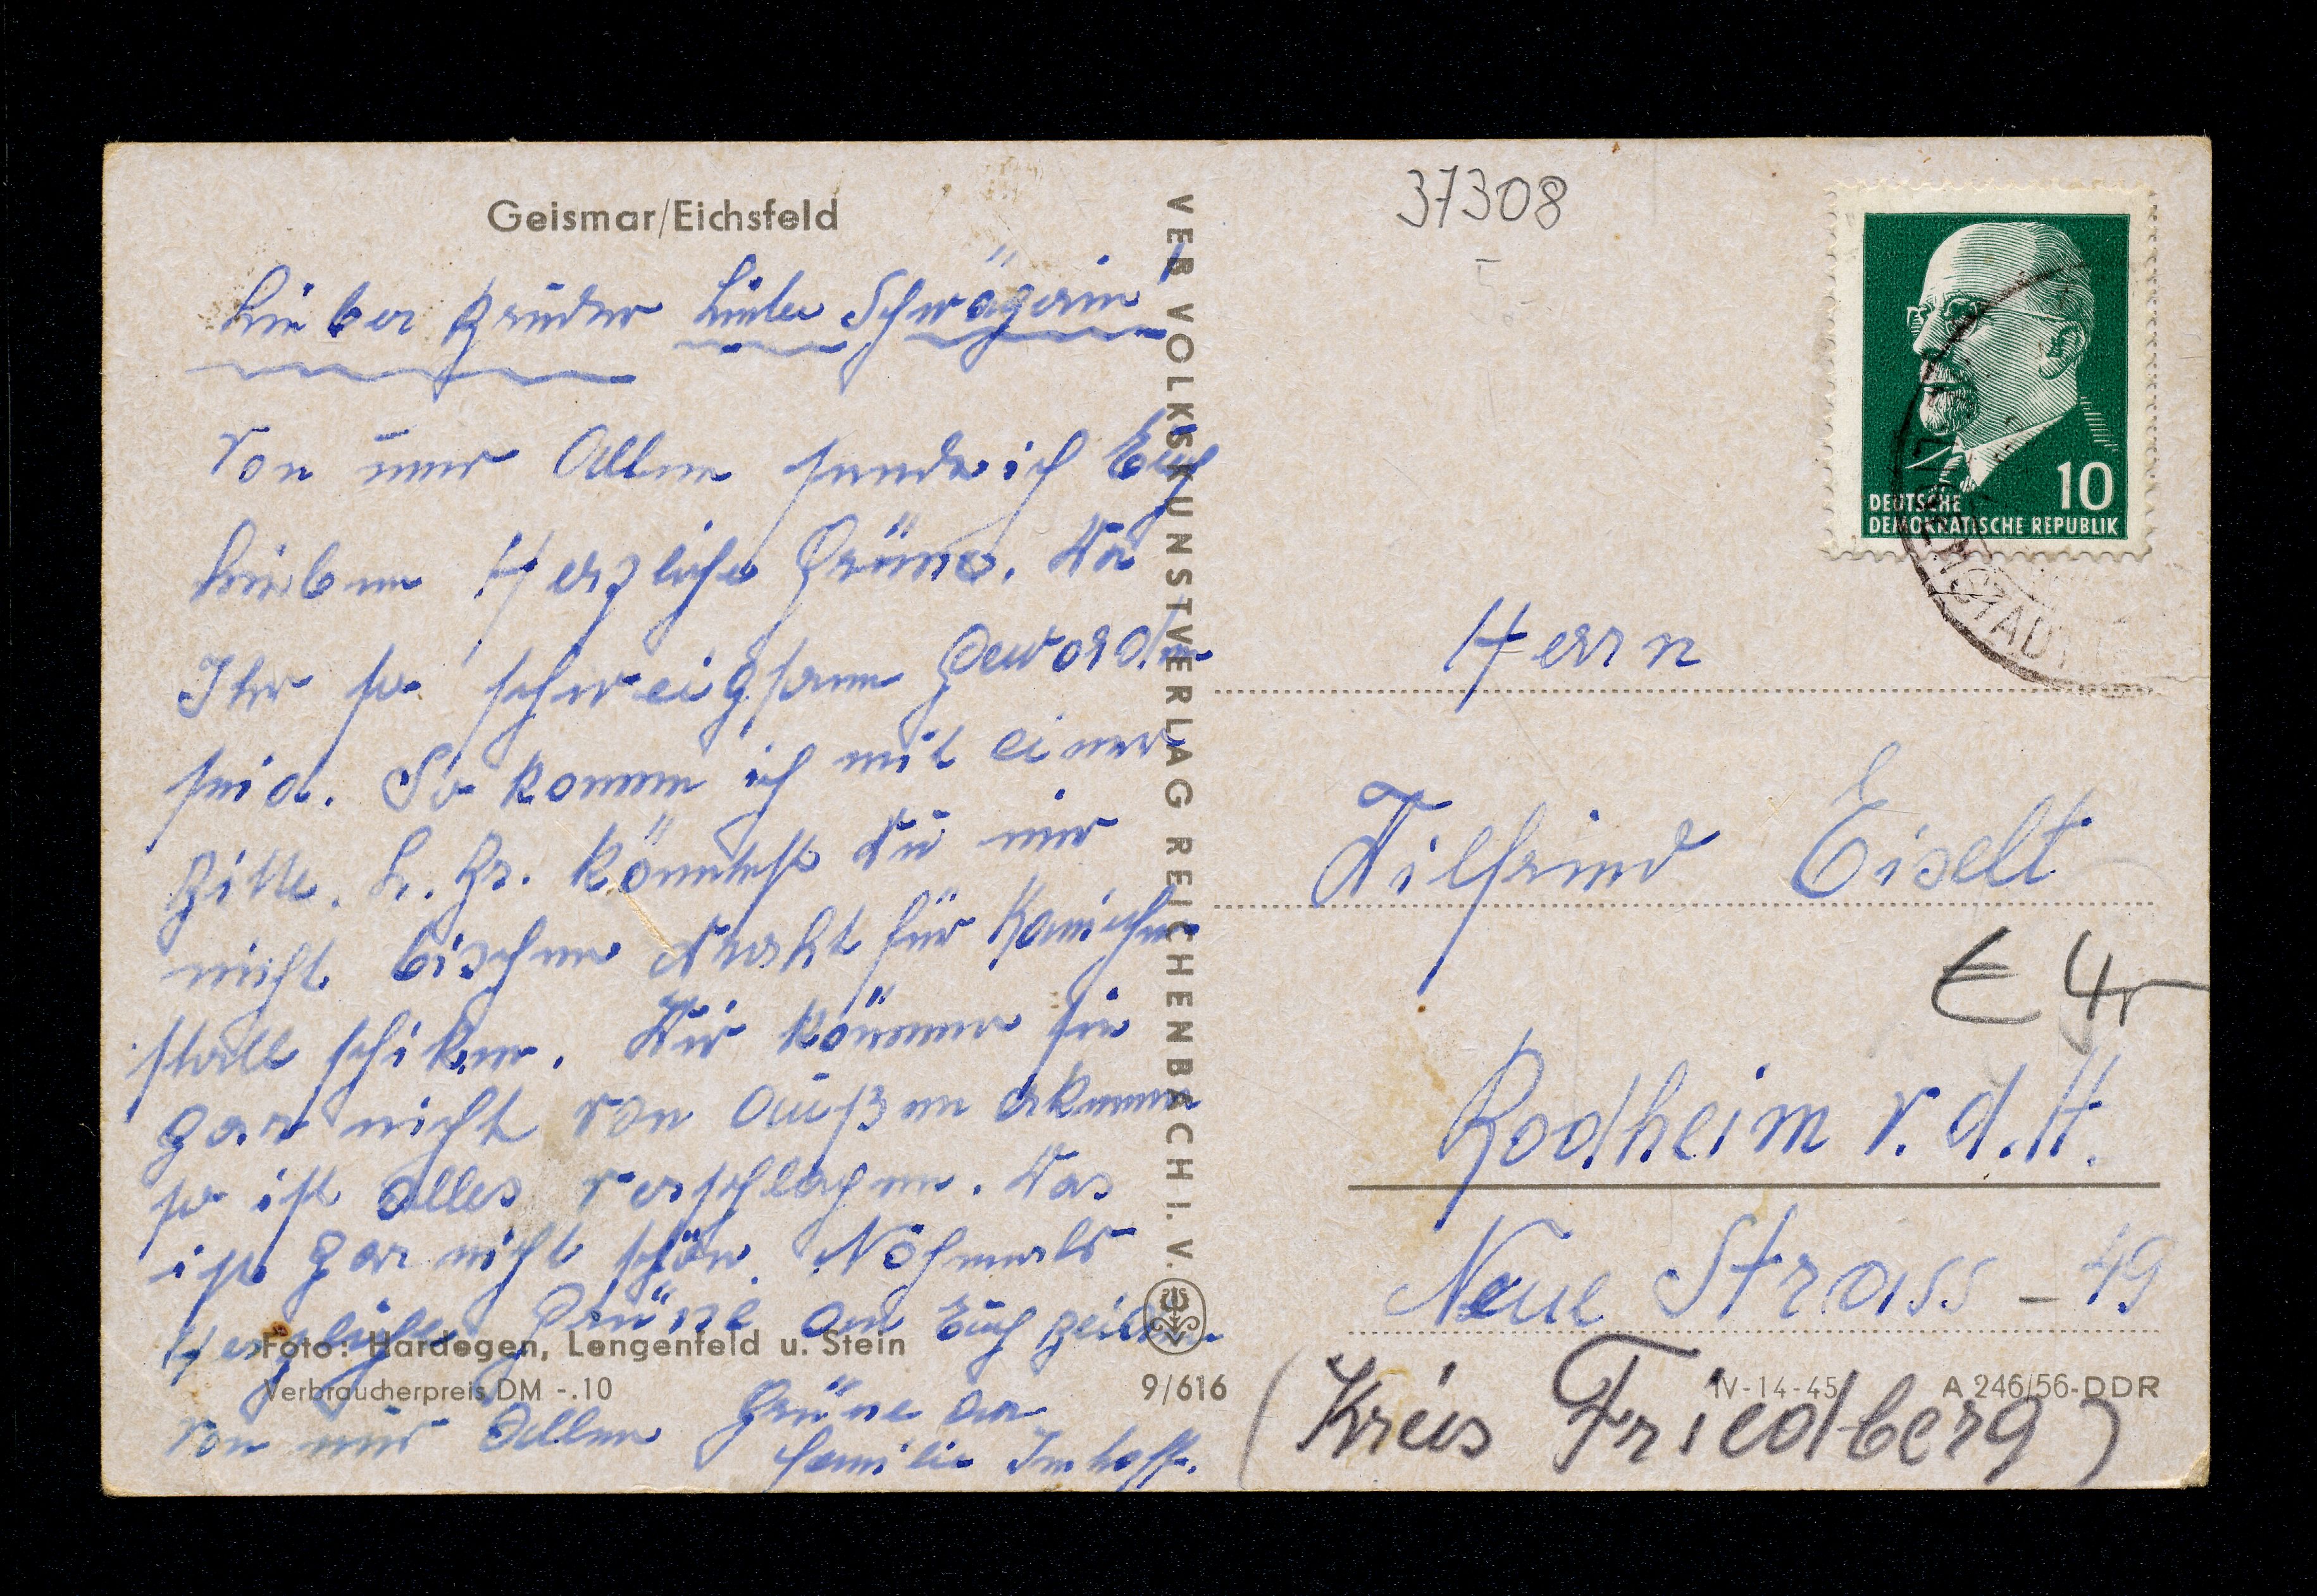 Geismar/Eichsfeld
Lieber Bruder Liebe Schwägerin!
Von uns Allen sende ich Euch
Lieben Herzliche Grüße. Da
Ihr so schweigsam geworden
seid. So komme ich mit einer
Bitte. L. Br. könntest Du mir
nicht bischen Draht für Kaninchen
stall schiken. Wir können sie
gar nicht von außen erkennen
so ist alles verschlagen. Das
ist gar nicht schön. Nochmals
Herzliche Grüße an Euch beiden
von uns Allen Grüße an
Familie Imhoff.
Foto: Hardegen, Lengenfeld u. Stein
Verbraucherpreis DM -.10
9/616
VEB VOLKSKUNSTVERLAG REICHENBACH I. V.
37308
10
DEUTSCHE
DEMOKRATISCHE REPUBLIK
Herrn
Wilfried Eiselt
€ 4,-
Rodheim v. d. H.
Neue Strass - 49
IV-14-45 A 246/56-DDR
(Kreis Friedberg)